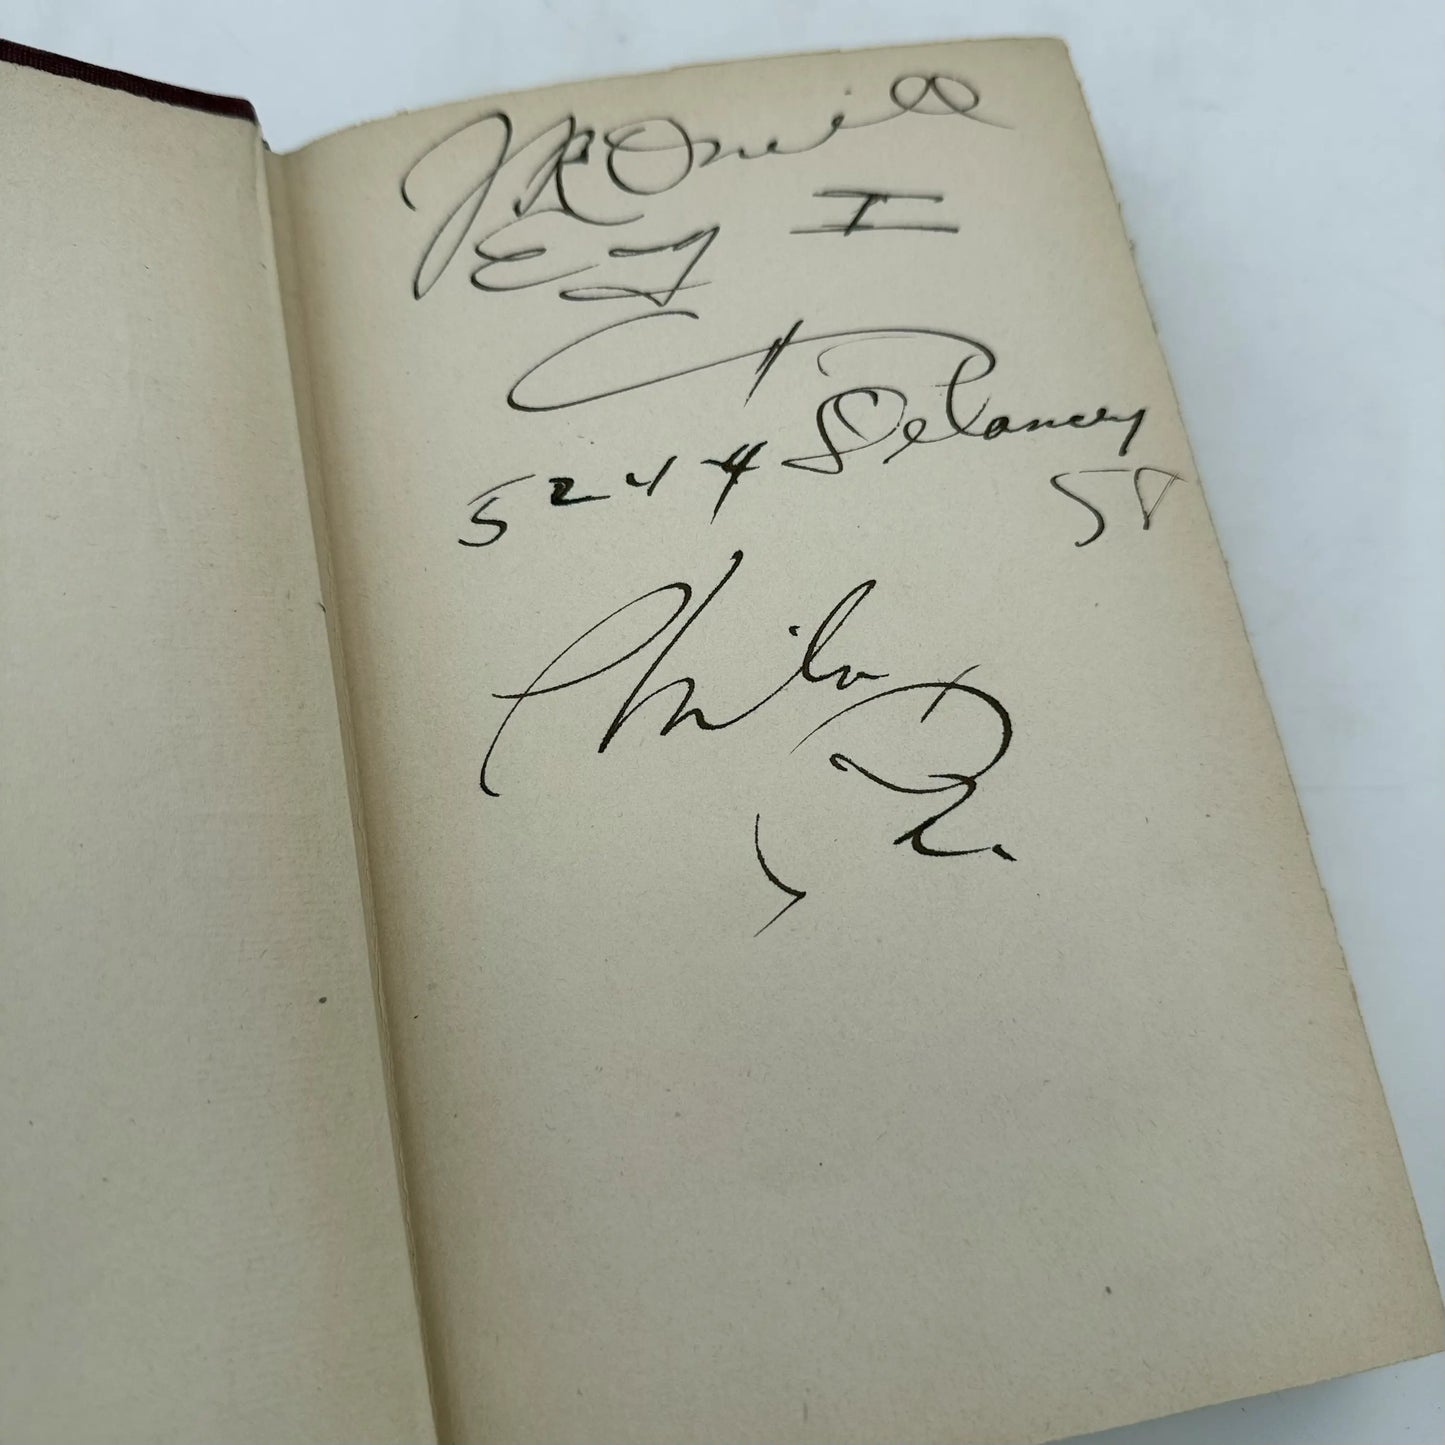 JR Oneill
E I
5244 Delancey
St
Phila
Pa.